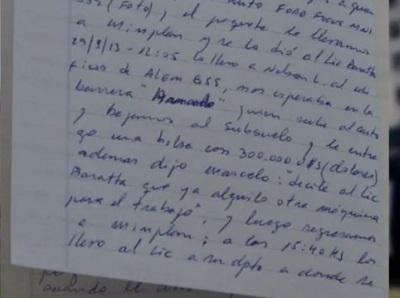 auto FORD FOCUS MNI
559 (foto), y el paquete lo llevamos
a Minplan y se lo dió al Lic Baratta
29/8/13 - 12:05 lo llevo a Nelson L. al edi
ficio de Alem 855, nos esperaba en la
barrera "Marcelo" quien sube al auto
y bajamos al subsuelo y le entre
go una bolsa con 300.000 U$S (dolares)
ademas dijo Marcelo: "decile al Lic
Baratta que ya alquilo otra máquina
para el trabajo", y luego regresamos
a Minplan; a las 15:40 Hs lo
llevo al Lic a su dpto a donde se
cuando le